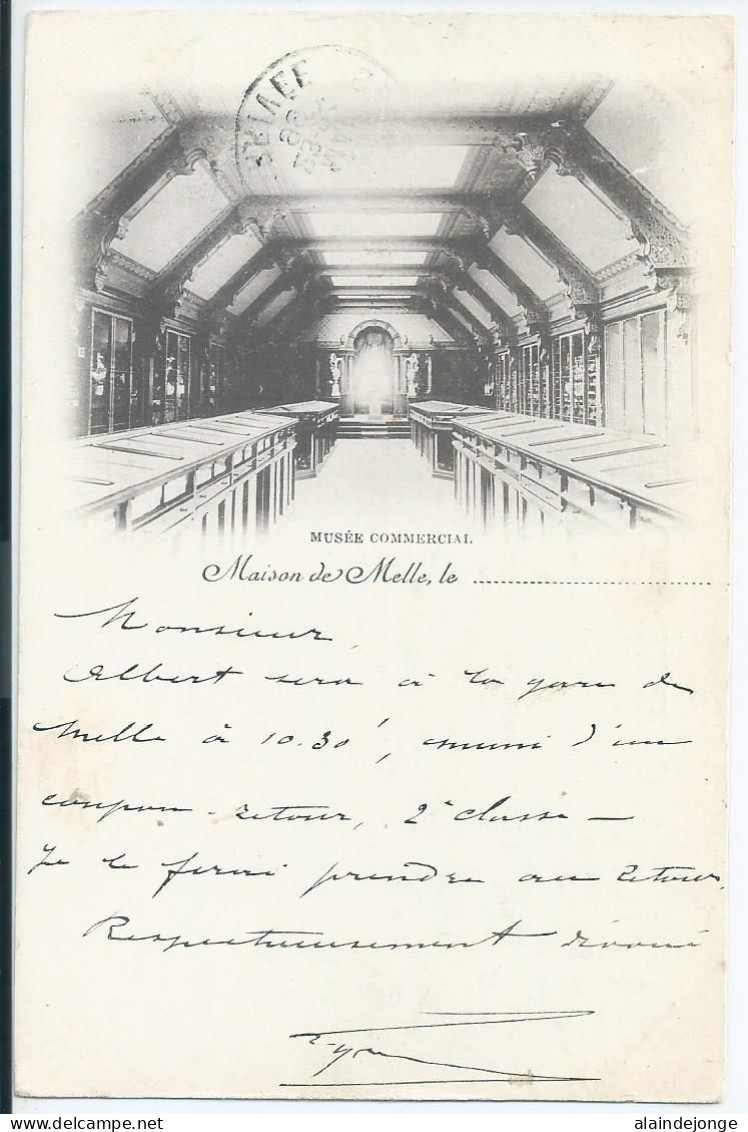 MUSÉE COMMERCIAL
Maison de Melle, le
Monsieur,
Albert sera à la gare de
Melle à 10.30', muni d'un
coupon-retour, 2e classe —
Je le ferai prendre au retour.
Respectueusement dévoué
alaindejonge